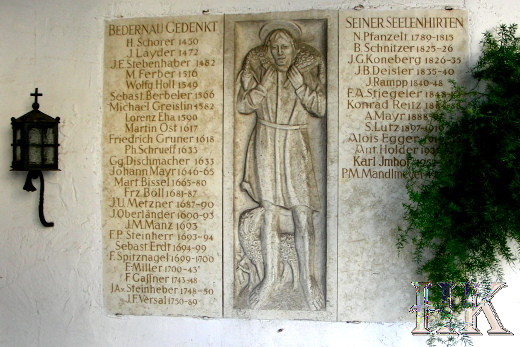 BEDERNAU GEDENKT
H. SCHORER 1450
J. LAYDER 1472
J.F. STEBENHABER 1482
M. FERBER 1516
WOLFG. HÖLL 1549
SEBAST. BERBELER 1566
MICHAEL GREISLIN 1582
LORENZ EHA 1590
MARTIN OST 1617
FRIEDRICH GRUNER 1618
PH. SCHRUEFF 1633
GG. DISCHMACHER 1633
JOHANN MAYR 1646-65
MART. BISSEL 1665-80
FRZ. BÖLL 1681-87
J.U. METZNER 1687-90
J. OBERLÄNDER 1690-93
J.M. MANZ 1693
F.P. STEINHERR 1693-94
SEBAST. ERDT 1694-99
F. SPITZNAGEL 1699-1700
F. MILLER 1709-43
F. GASSNER 1743-48
J.A.V. STEINHEBER 1748-50
J.F. VERSAL 1750-89
SEINER SEELENHIRTEN
N. PFANZELT 1789-1815
B. SCHNITZER 1825-26
J.G. KONEBERG 1826-35
J.B. DEISLER 1835-40
J. RAMPP 1840-48
F.A. STIEGELER 1848
KONRAD REITZ
A. MAYR 1888
S. LUTZ 1897
ALOIS EGGER
ANT. HOLDER
KARL JMHOF
P.M. MANDLMEYER
HK